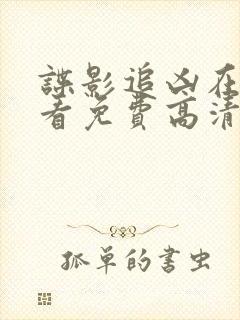 諜影追凶在
看免費高清
孤單的書虫